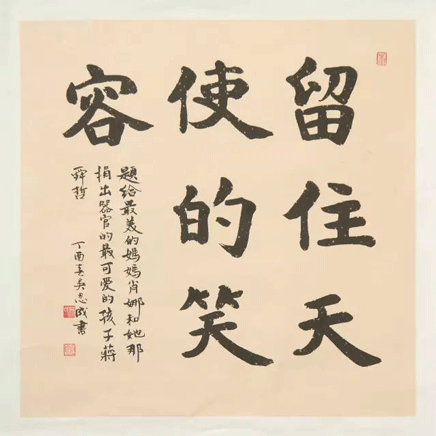 留住天
使的笑
容
題给最美的媽媽肖娜和她那
捐出器官的最可爱的孩子蔣
舜哲
丁酉春吴思成書